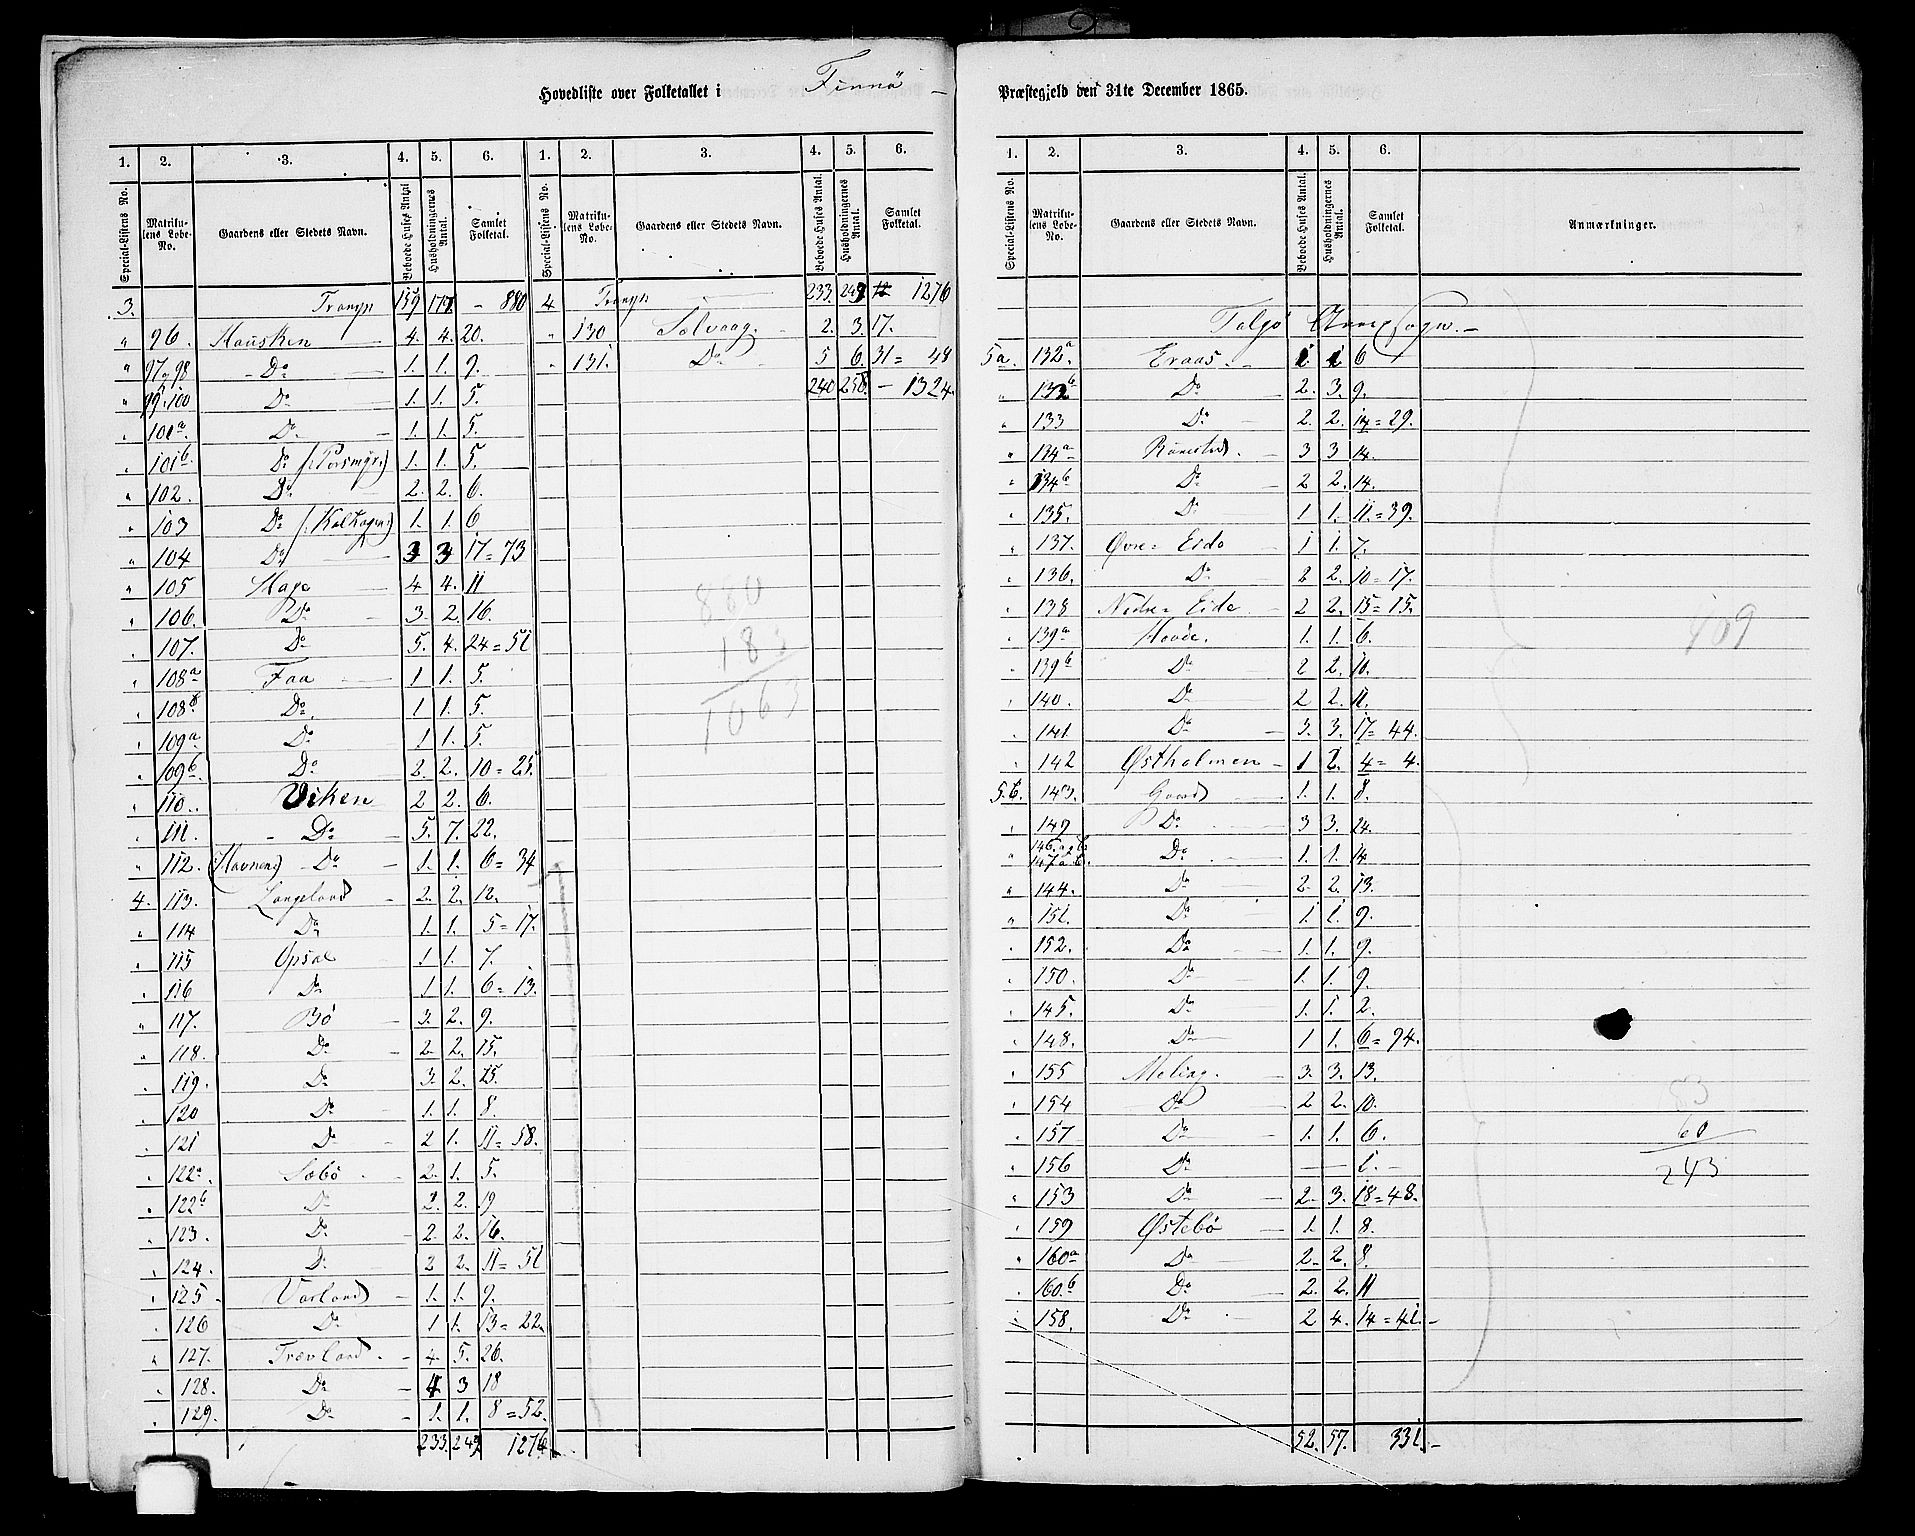 Hovedliste over Folketallet i Finnö
Præstegjeld den 31te December 1865.
1. 2. 3. 4. 5. 6. 1. 2. 3. 4. 5. 6.
Special-Listens No. Matrikulens Löbe-No. Gaardens eller Stedets Navn. Beboede Huses Antal Husholdningernes Antal. Samlet Folketal. Special-Listens No. Matrikulens Löbe-No. Gaardens eller Stedets Navn. Beboede Huses Antal. Husholdningernes Antal. Samlet Folketal.
3. Transp 159 177 - 880
" 96. Hausken 4. 4. 20.
" 97 98 Do 1. 1. 9.
" 99. 100 Do 1. 1. 5.
" 101a. Do. 1. 1. 5.
" 101b. Do 1. 1. 5.
" 102. Do 2. 2. 6.
" 103 Do 1. 1. 6
" 104 Do 3 3 17 = 73
" 105 Hage 4 4. 11
" 106. Do 3. 2. 16.
" 107. Do 5. 4. 24 = 51
" 108a Faa 1 1. 5.
" 108b Do. 1 1. 5.
" 109a Do 1 1. 5.
" 109b. Do 2. 2. 10 = 25.
" 110. Viken 2 2. 6.
" 111. Do 5. 7. 22.
" 112. (Havnen) Do 1. 1. 6 = 34
4. 113. Langeland 2. 2. 12.
" 114 Do 1. 1. 5 = 17.
" 115 Opsal 1 1. 7.
" 116 Do 1 1. 6 = 13.
" 117. Bö 3. 2. 9.
" 118. Do 2. 2. 15.
" 119. Do 3. 2. 15.
" 120 Do 1. 1. 8.
" 121 Do 2 1. 11 = 58.
" 122a. Sæbö 2. 1. 5.
" 122b Do 2. 2. 19
" 123. Do 2. 2. 16.
" 124. Do 2 2. 11 = 51
" 125 Varland 1. 1. 9.
" 126 Do 1 1. 13 = 22.
" 127. Trævland. 4. 5. 26.
" 128. Do 4 3 18
" 129. Do 1. 1. 8 = 52.
233. 249 1276.
4 Transp 233. 249 1276
" 130 Selvaag. 2. 3. 17.
" 131. Do 5 6. 31 = 48
240 258. - 1324.
880
183
1063
1. 2. 3. 4. 5. 6.
Special-Listens No. Matrikulens Löbe-No. Gaardens eller Stedets Navn. Beboede Huses Antal. Husholdningernes Antal. Samlet Folketal. Anmærkninger.
Talgö Sogn.
5a. 132a. Eraas. 1. 1 6
" 132b Do 2. 3. 9.
" 133 Do 2. 2. 14 = 29.
" 134a 3 3 14.
" 134b Do 2 2. 14.
" 135. Do 1 1. 11. = 39.
" 137. Øvre Eide 1 1. 7.
" 136. Do 2 2. 10 = 17.
" 138 Nedre Eide. 2 2. 15 = 15.
" 139a Hovde. 1. 1. 6.
" 139b Do 2 2. 10.
" 140. Do 2 2. 11.
" 141. Do 3. 3. 17 = 44.
" 142 Østholmen 1 2. 4 = 4.
5.b. 143. Gaard 1. 1. 8.
" 149 Do 3 3. 24.
" 146. a & b 147 a & b. Do 1. 1. 14
" 144. Do 2. 2. 13.
" 151. Do 1. 1. 9.
" 152. Do 1. 1. 9.
" 150. Do 1. 1. 9.
" 145. Do 1. 1. 2.
" 148. Do 1 1. 6 = 94.
" 155 Meling. 3. 3. 13.
" 154 Do 2 2. 10.
" 157 Do 1. 1. 6.
" 156 Do 1.
" 153 Do 2. 3. 18 = 48.
" 159 Østebö 1. 1. 8.
" 160a Do 2. 2. 8.
" 160b Do 2. 2. 11
" 158. Do 2 4. 14 = 41.
52. 57. 331.
83
60
243